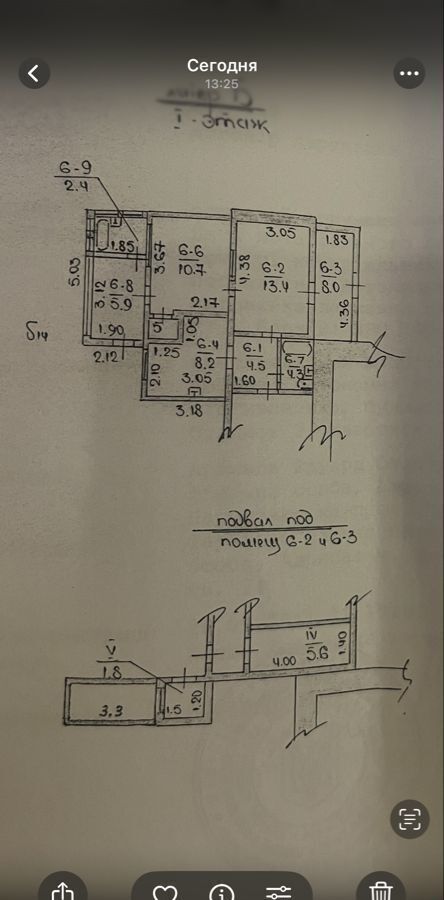 Сегодня
13:25
I - этаж
6-9
2.4
1.85
3.67
6-6
10.7
3.05
1.83
5.03
3.12
6-8
5.9
4.38
6-2
13.4
6-3
8.0
4.36
2.17
1.90
5
1.05
6-4
8.2
6-1
4.5
6-7
4.3
2.12
1.25
2.10
3.05
1.60
3.18
подвал под
помещ 6-2 и 6-3
IV
5.6
1.40
4.00
V
1.8
3.3
1.5
1.20